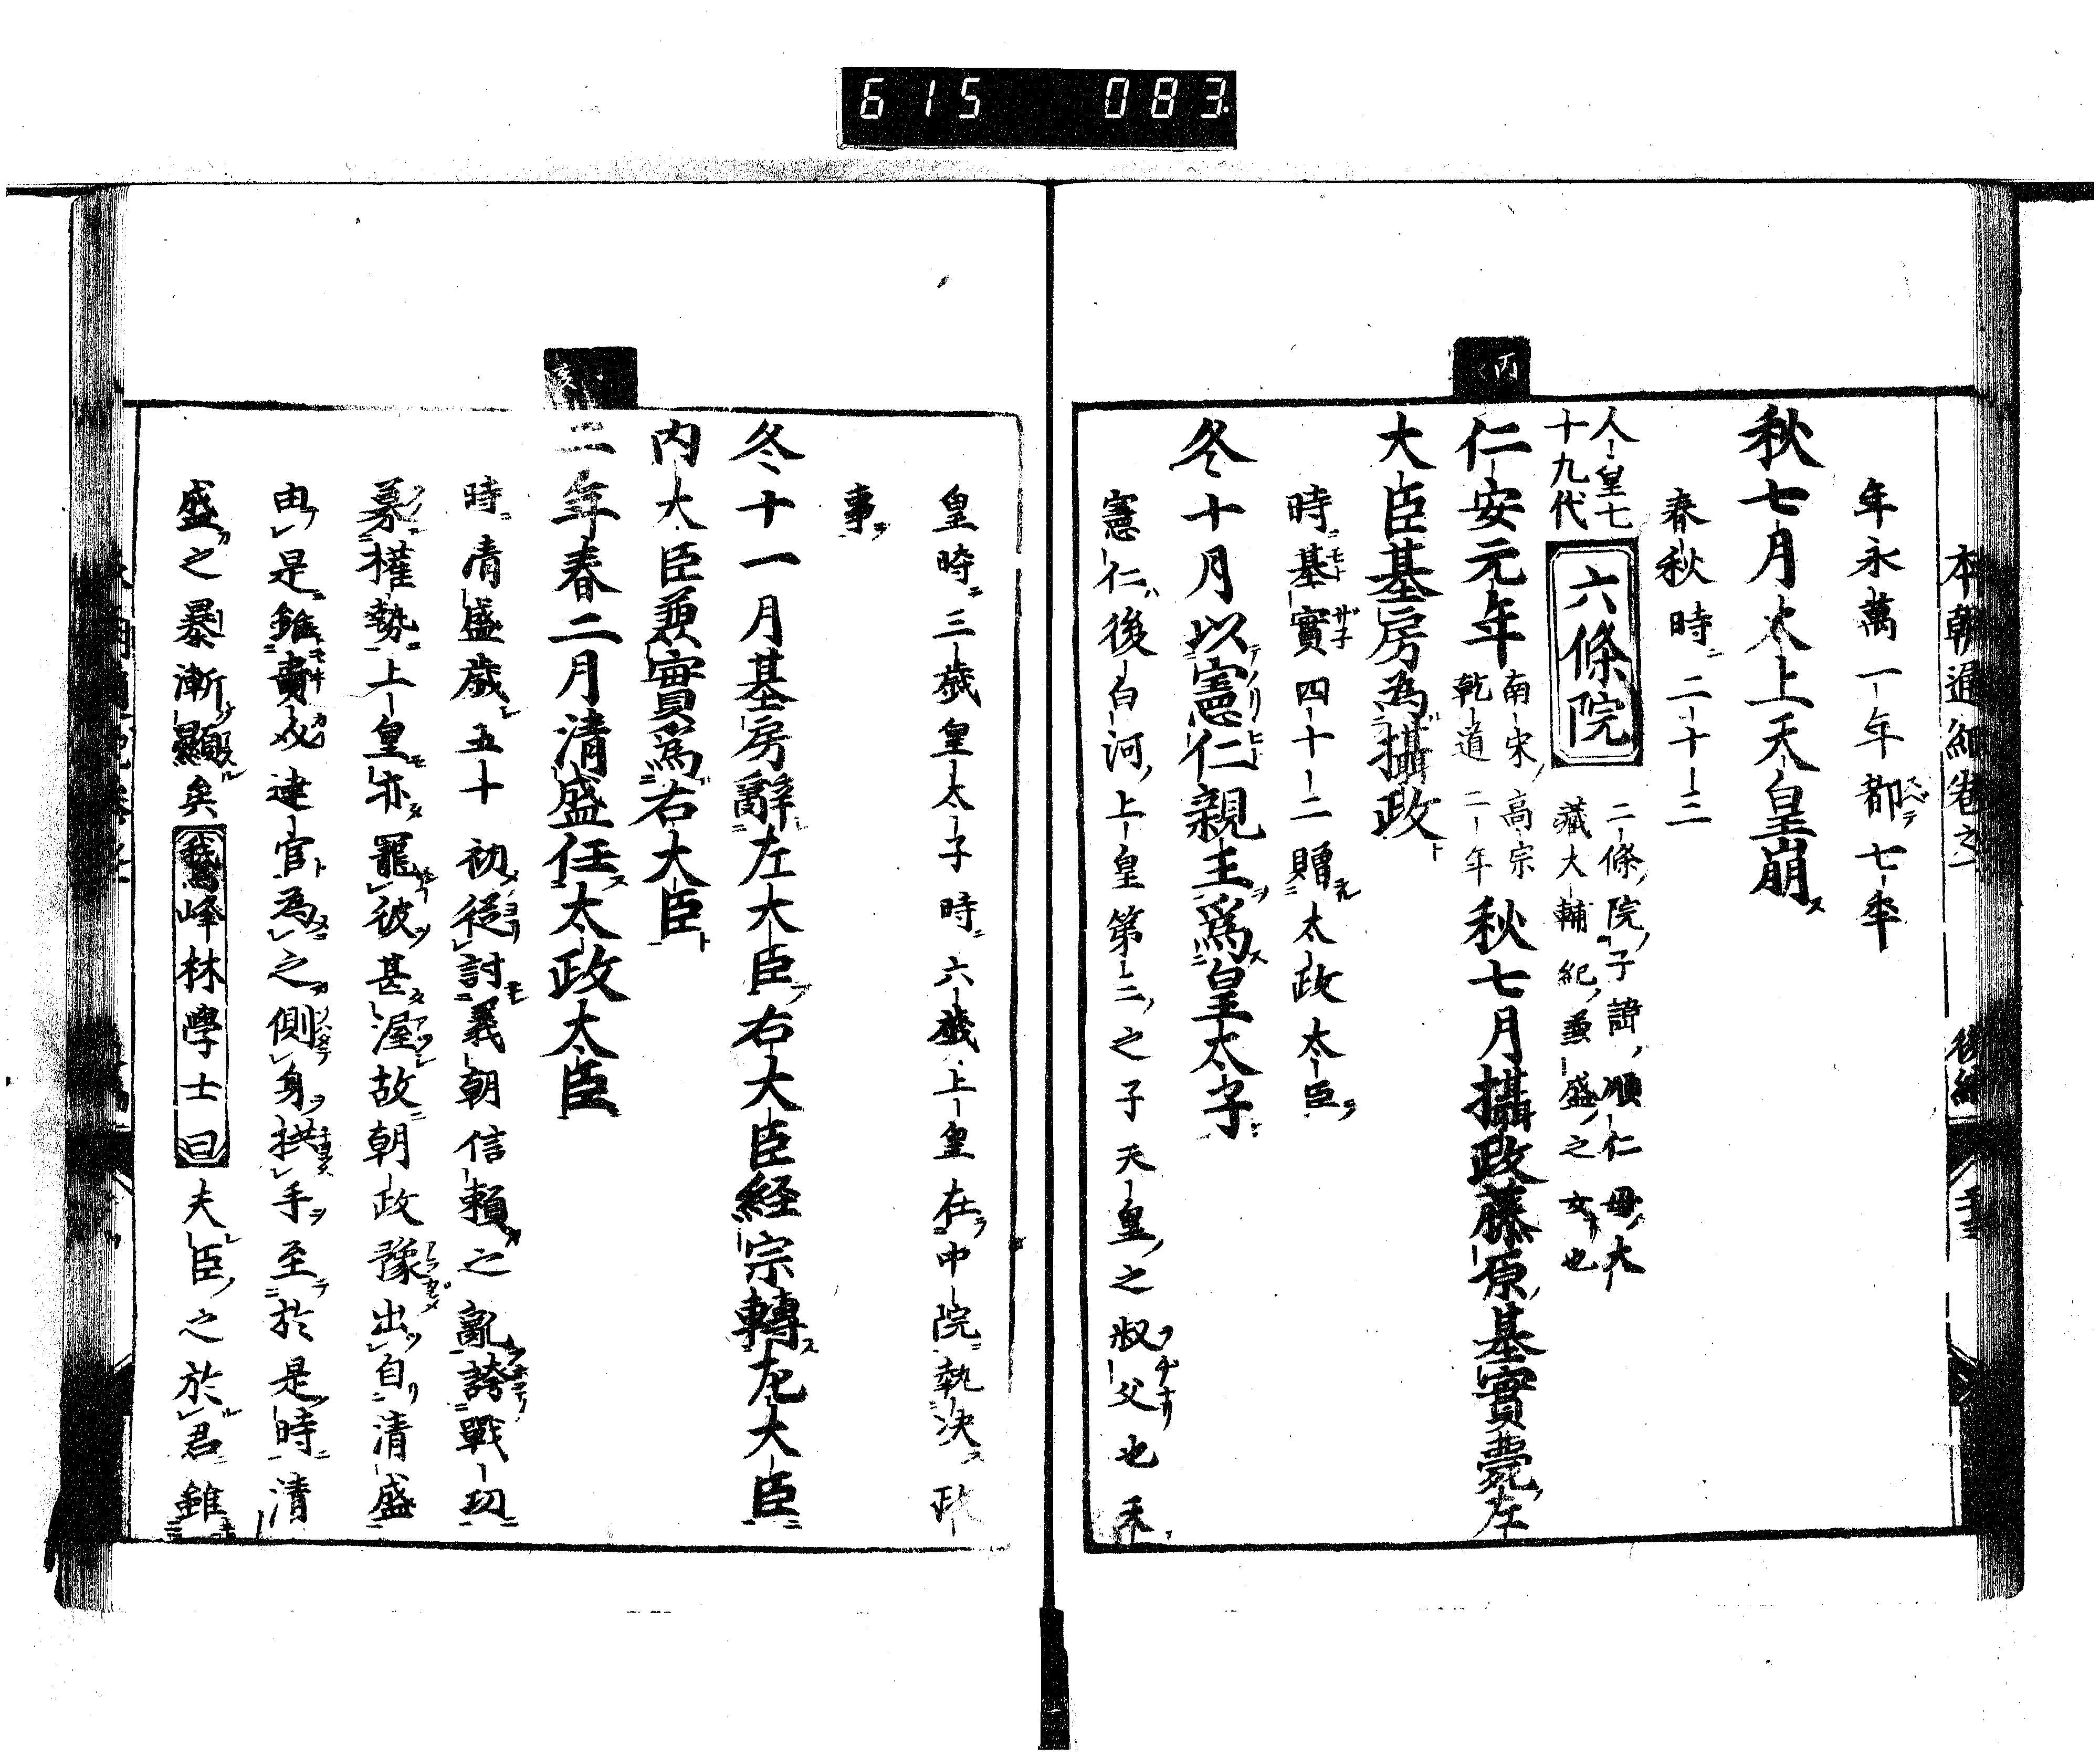 615 083
本朝通紀卷之
後編
年永萬一年都七年
秋七月太上天皇崩
春秋時二十三
人皇七十九代
六條院
二條院子諱順仁母大
藏大輔紀兼盛之女也
仁安元年
南宋高宗
乾道二年
秋七月攝政藤原基實薨左
大臣基房為攝政
時基實四十二贈太政太臣
冬十月以憲仁親王爲皇太子
憲仁後白河上皇第二之子天皇之叔父也天
丙
皇時三歲皇太子時六歲上皇在中院執決政
事
冬十一月基房辭左大臣右大臣経宗轉左大臣
内大臣兼實爲右大臣
二年春二月清盛任太政大臣
時清盛歲五十初從討義朝信賴之亂誇戰功
募權勢上皇亦寵彼甚渥故朝政豫出自清盛
由是雖貴戚逮官為之側身拱手至於是時清
盛之暴漸顯矣
鵞峰林學士曰
夫臣之於君雖
亥